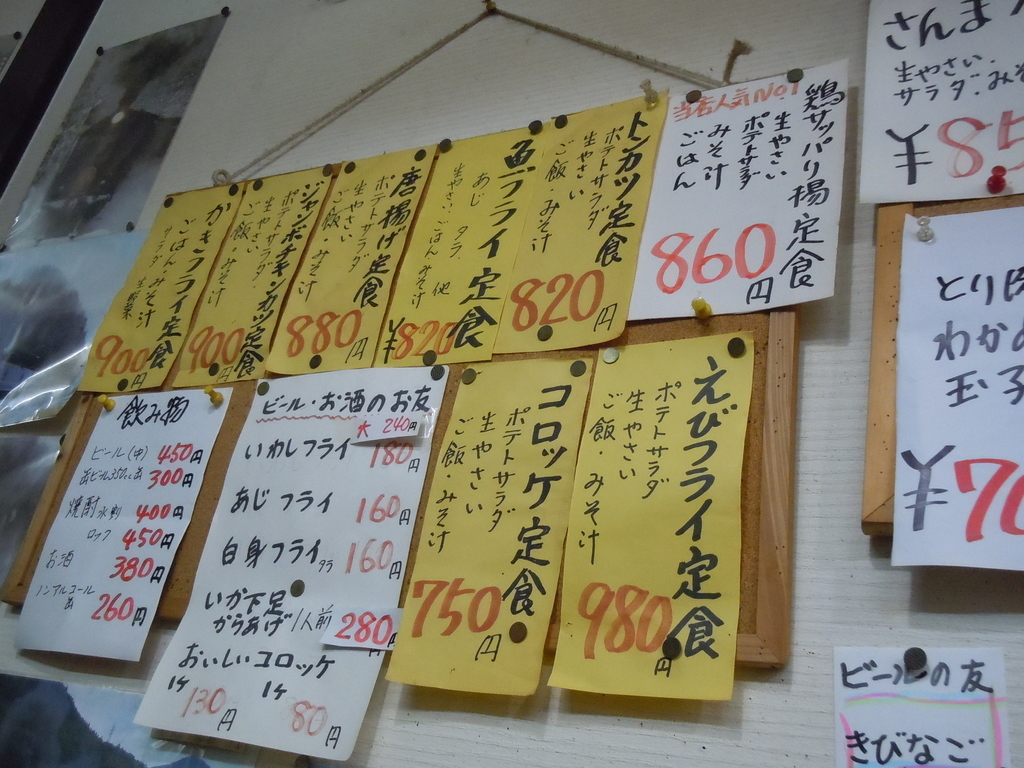 かきフライ定食
ごはん・みそ汁
サラダ・生野菜
900円
ジャンボチキンカツ定食
ポテトサラダ
生やさい
ご飯・みそ汁
900円
唐揚げ定食
ポテトサラダ
生やさい
ご飯・みそ汁
880円
魚フライ定食
あじ タラ 他
生やさい・ごはん みそ汁
¥820
トンカツ定食
ポテトサラダ
生やさい
ご飯・みそ汁
820円
当店人気No1
鶏サッパリ揚定食
生やさい
ポテトサラダ
みそ汁
ごはん
860円
さんま
生やさい
サラダ・みそ
¥85
飲み物
ビール(中) 450円
缶ビール350cc缶 300円
焼酎 水割 400円
ロック 450円
お酒 380円
ノンアルコール
缶 260円
ビール・お酒のお友
大 240円
いわしフライ 180円
あじフライ 160円
白身フライ タラ 160円
いか下足
からあげ 1人前 280円
おいしいコロッケ
1ヶ 1ヶ
130円 80円
コロッケ定食
ポテトサラダ
生やさい
ご飯・みそ汁
750円
えびフライ定食
ポテトサラダ
生やさい
ご飯・みそ汁
980円
とり肉
わかめ
玉子
¥70
ビールの友
きびなご